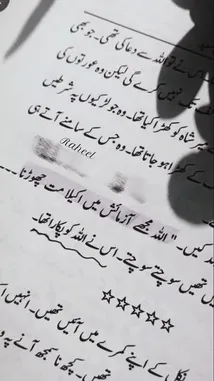 نے تو اللہ سے دعا کی تھی۔ جو بھی
تک نہیں کرے گی لیکن وہ عورتوں کی
شاہ کو کھڑا کیا تھا۔ وہ جو لڑکیوں پہ شرطیں
کے کھڑا ہو جاتا تھا۔ وہ جس کے سامنے آتے ہی
@Raheel
کیں۔ "اللہ مجھے آزمائش میں اکیلا مت چھوڑنا۔۔۔
تھیں سوچتے سوچتے۔ اس نے اللہ کو پکارا تھا۔
☆☆☆☆☆
کے اپنے کمرے میں آئیں تھیں۔ انہیں
تھیں۔ کچھ نا سمجھ آنے پہ